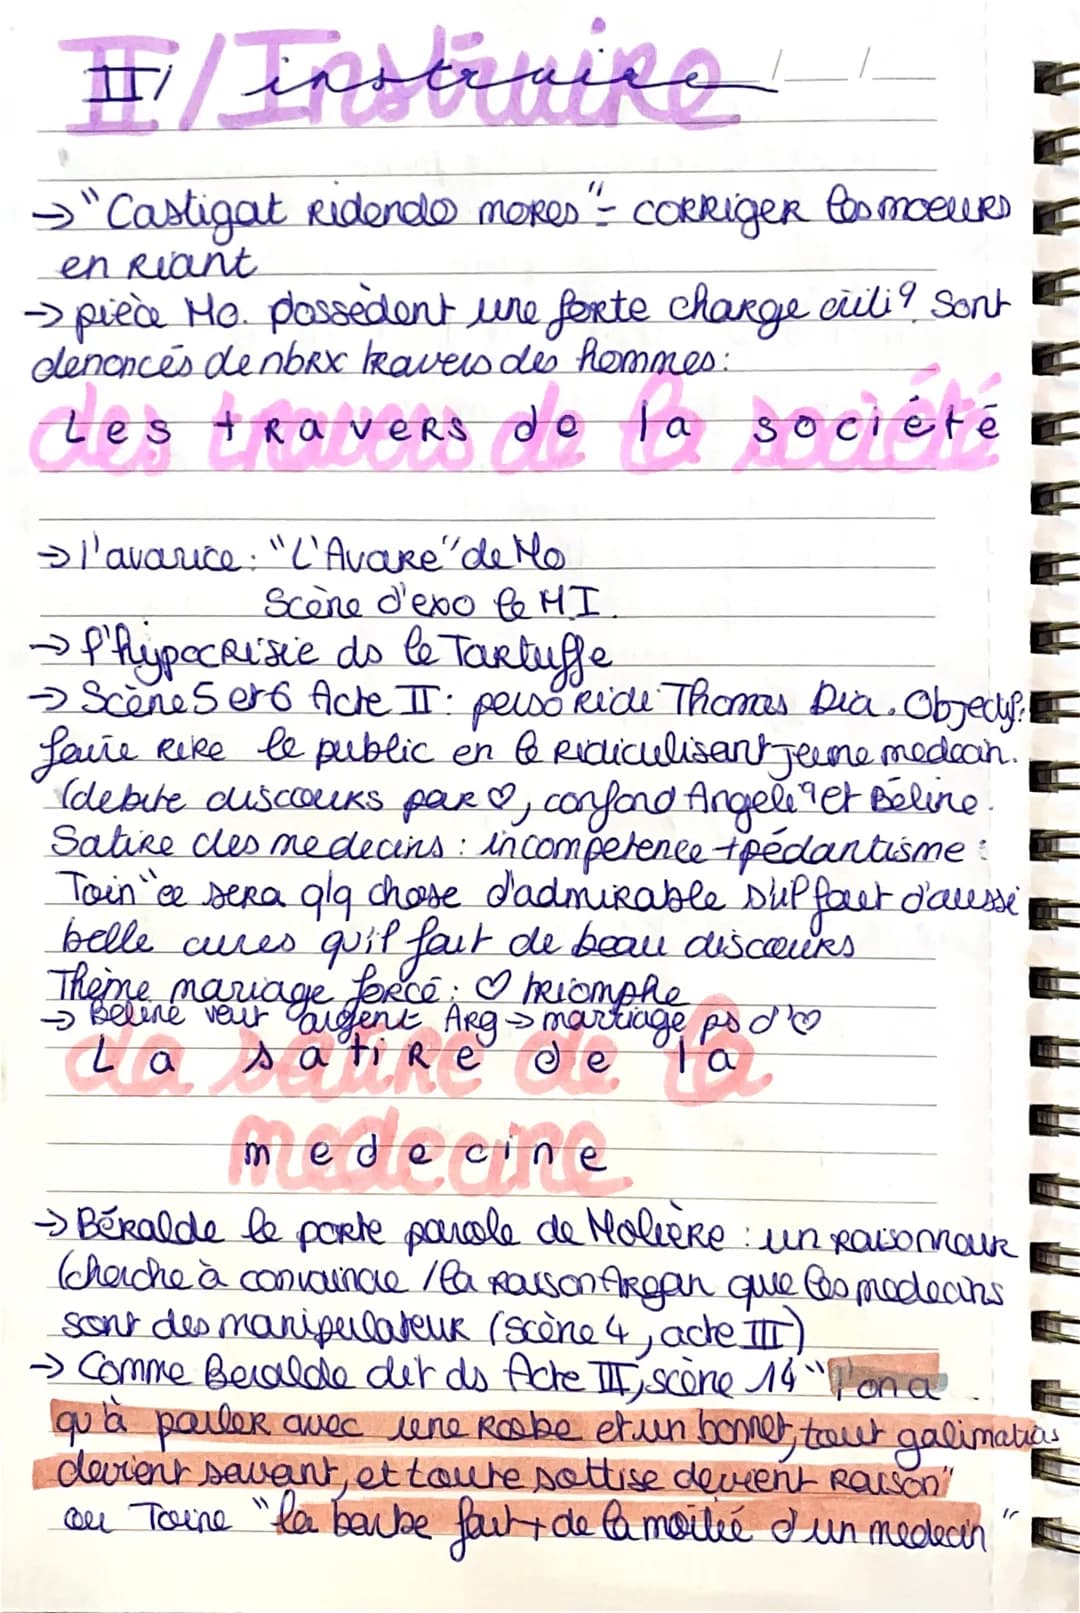 II/ instruire
→ "Castigat Ridendo mores" - corriger les moeurs
en Riant
→ pièce Mo. possèdent une forte charge Sont
denoncés de nbrx travers des hommes:
Les travers de la société
→ l'avarice: "L'Avare" de Mo
Scène d'expo le MI.
→ l'hypocrisie ds le Tartuffe
→ Scène 5 et 6 Acte II: perso Ridi Thomas Dia. Objectif:
faire rire le public en le ridiculisant jeune medecin.
(debite discours par ♡, confond Angeli et Béline.
Satire des medecins: incompetence + pédantisme:
Toin "ce sera qlq chose d'admirable s'il fait d'aussi
belle cures qu'il fait de beau discours
Thème mariage forcé: ♡ triomphe
→ Beline veut argent Arg → martiage ps d'♡
La satire de la
medecine
→ Béralde le porte parole de Molière: un raisonneur
(cherche à convaincre / la raison Argan que les medecins
sont des manipulateur (scène 4, acte III)
→ Comme Beralde dit ds Acte III, scène 14 "l'on a
qu'à parler avec une Robe et un bonnet, tout galimatias
devient savant, et toute sottise devient Raison"
ou Toine "la barbe fait + de la moitié d'un medecin"